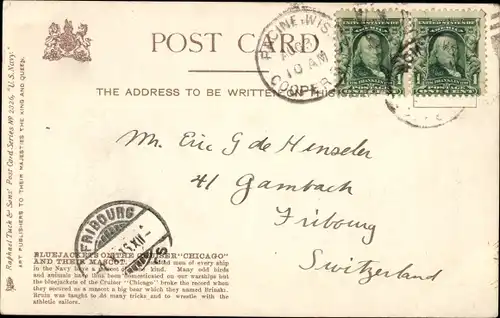 POST CARD
THE ADDRESS TO BE WRITTEN ON THIS
RACINE, WIS.
10 AM
COOPER
UNITED STATES OF AMERICA
UNITED STATES OF AMERICA
Mr. Eric G de Henseler
41 Gambach
Fribourg
Switzerland
FRIBOURG
Raphael Tuck & Sons' Post Card Series No 2326, "U.S. Navy."
ART PUBLISHERS TO THEIR MAJESTIES THE KING AND QUEEN.
BLUEJACKETS ON THE CRUISER "CHICAGO"
AND THEIR MASCOT. men of every ship
in the Navy have a of kind. Many odd birds
and animals have thus been domesticated on our warships but
the bluejackets of the Cruiser "Chicago" broke the record when
they secured as a mascot a big bear which they named Brinski.
Bruin was taught to do many tricks and to wrestle with the
athletic sailors.